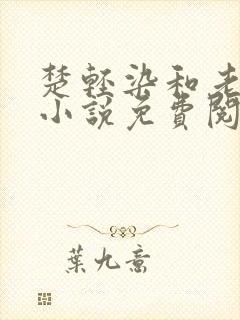 楚輕染和老
小說免費閱
葉九喬